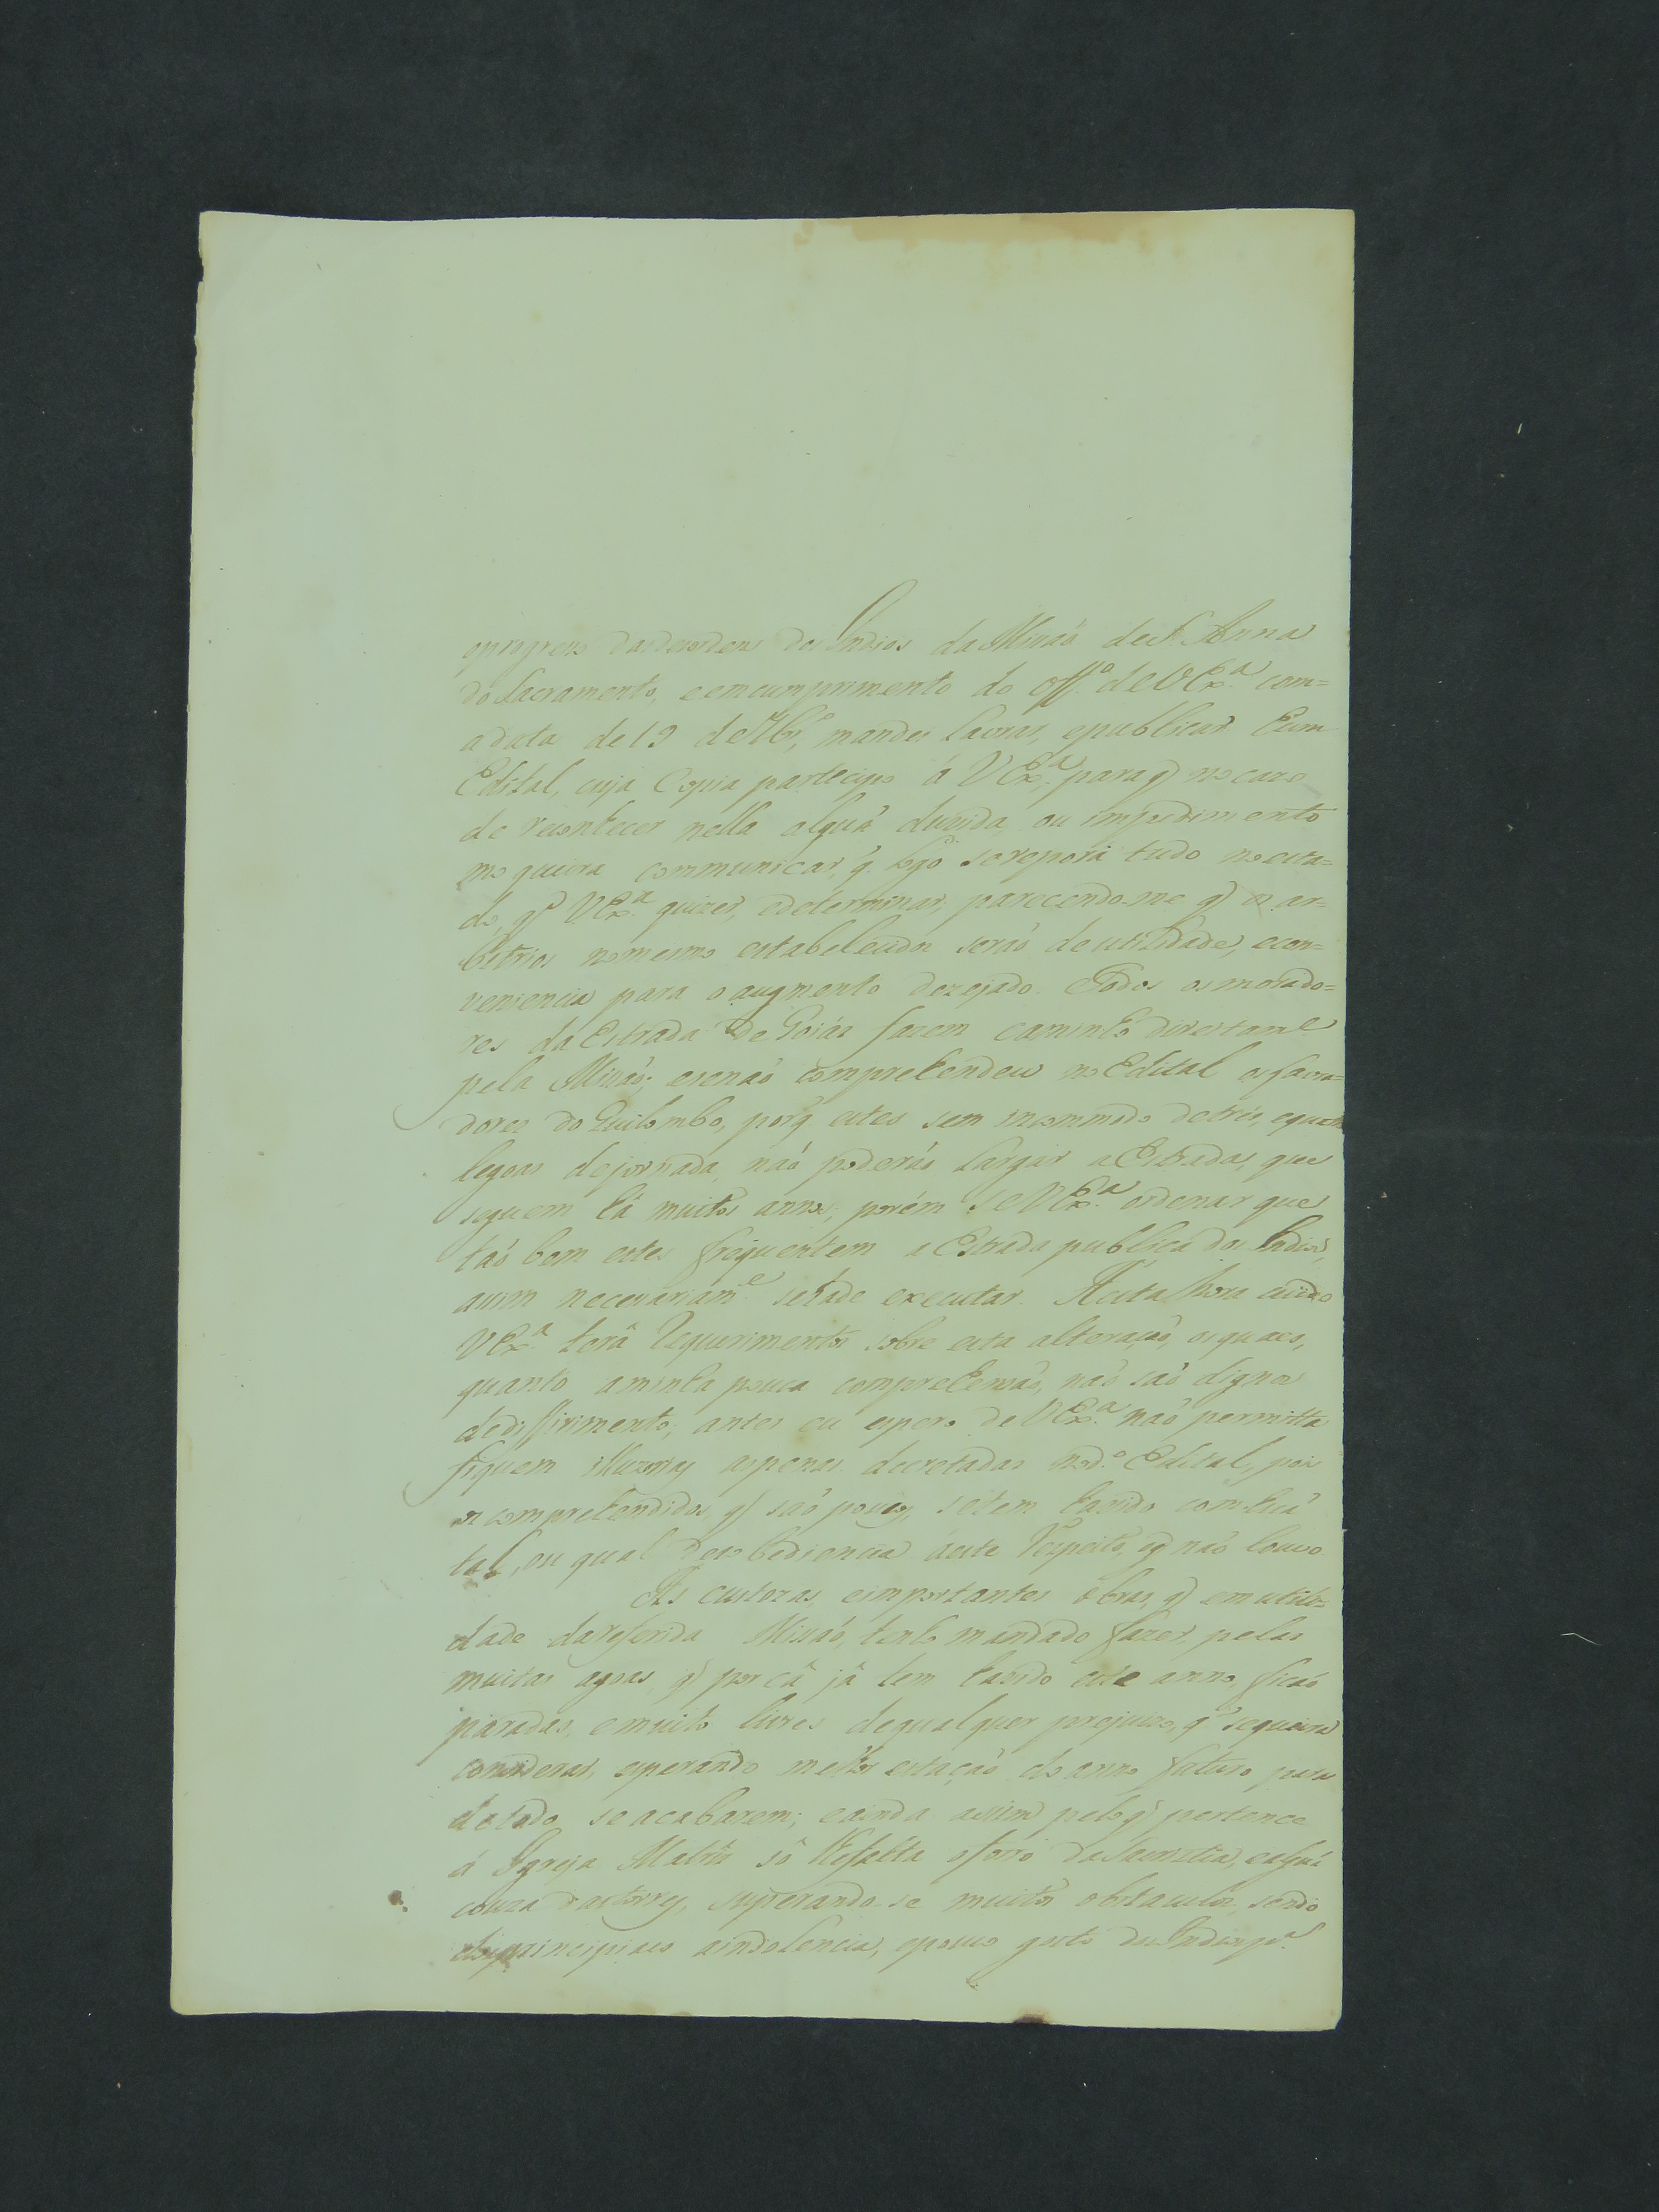 oprogreso das desordens dos Indios da Missaõ de S. Anna
do Sacramento, e em cumprimento do off.º de V Ex.ª com=
a data de 19 de 7br.º, mandei lavrar, e publicar hum
Edital, cuja Copia participo á V Ex.ª, para q̃ no cazo
de reconhecer nella alguã duvida, ou impedimento
me queira communicar, q̃ logo se reporá tudo no esta=
do, q̃ V Ex.ª quizer, e determinar, parecendo-me q̃ os ar=
bitrios no mesmo estabelecidos seraõ de utilidade, e con=
veniencia para o augmento dezejado. Todos os morado=
res da Estrada de Goiás fazem caminho directam.e
pela Missaõ; e se naõ comprehendeu no Edital os lavra=
dores do Quilombo, porq̃ estes sem incommodo de trés, e quatro
legoas de jornada, naõ poderaõ largar a Estrada, que
seguem há muitos annos; porém se V Ex.ª ordenar que
taõ bem estes frequentem a Estrada publica dos Indios,
assim necessariam.e se hade executar. A esta hora cuido
V Ex.ª terá Requerimentos sobre esta alteraçaõ, os quaes,
quanto a minha pouca comprehensaõ, naõ saõ dignos
de differimento; antes eu espero de V Ex.ª naõ permitta
fiquem illuzorias as penas decretadas no d.º Edital, pois
os comprehendidos, q̃ saõ poucos, se tem havido com huã
tal, ou qual dezobediencia á este Respeito, e q̃ naõ louvo.
As custozas, e importantes obras, q̃ em utili=
dade da referida Missaõ, tenho mandado fazer, pelas
muitas agoas, q̃ por cá já tem havido este anno, ficaõ
paradas, e muito livres de qualquer prejuizo, q̃ se queira
considerar, esperando melhor estaçaõ do anno futuro para
de todo se acabarem; e ainda assim pelo q̃ pertence
á Igreja Matriz só lhe falta o forro da Sacristia, e alguã
couza das torres, superando-se muitos obstaculos, sendo
dos principiaes a indolencia, e pouco gosto dos Indios p.ª